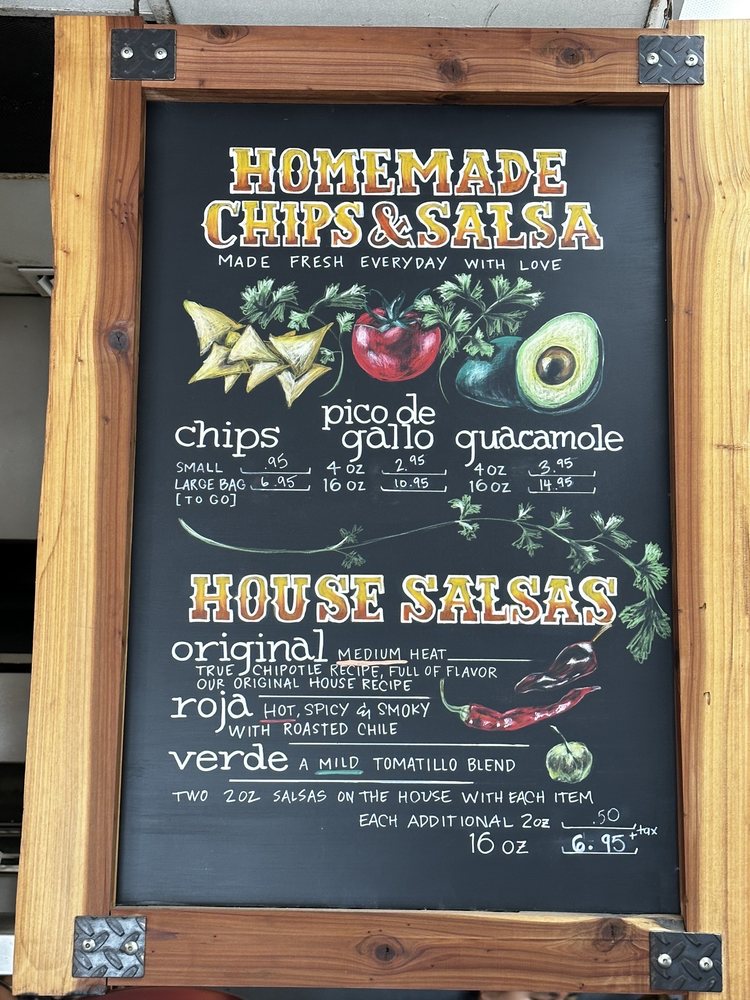 HOMEMADE
CHIPS & SALSA
MADE FRESH EVERYDAY WITH LOVE
chips
SMALL .95
LARGE BAG 6.95
[TO GO]
pico de
gallo
4 OZ 2.95
16 OZ 10.95
guacamole
4 OZ 3.95
16 OZ 14.95
HOUSE SALSAS
original MEDIUM HEAT
TRUE CHIPOTLE RECIPE, FULL OF FLAVOR
OUR ORIGINAL HOUSE RECIPE
roja HOT, SPICY & SMOKY
WITH ROASTED CHILE
verde A MILD TOMATILLO BLEND
TWO 2OZ SALSAS ON THE HOUSE WITH EACH ITEM
EACH ADDITIONAL 2oz .50
16 OZ 6.95 +tax